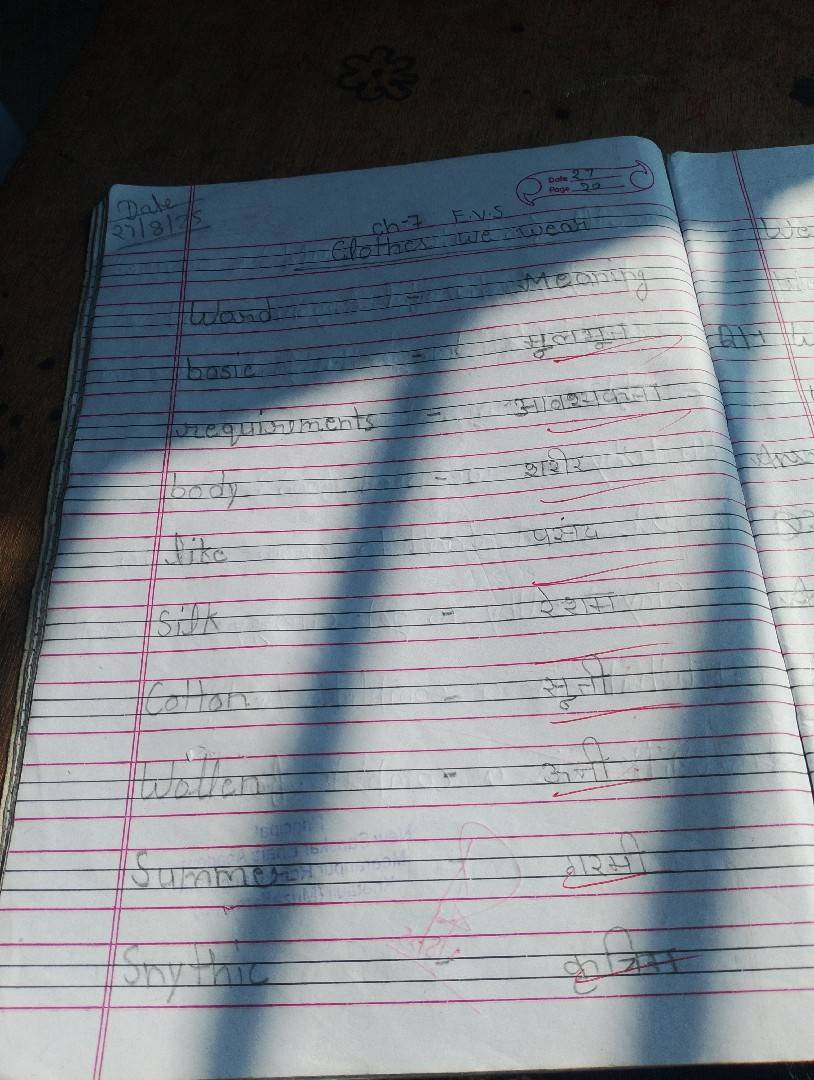 Date
27/8/25
Date 27
Page 20
ch-7 E.V.S
Clothes we wear
Word - Meaning
basic - मुलभुत
requirements - आवश्यकता
body - शरीर
like - पसंद
Silk - रेशम
Cotton - सूती
Wollen - ऊनी
Summer - गरमी
Snythic - कृत्रिम
We